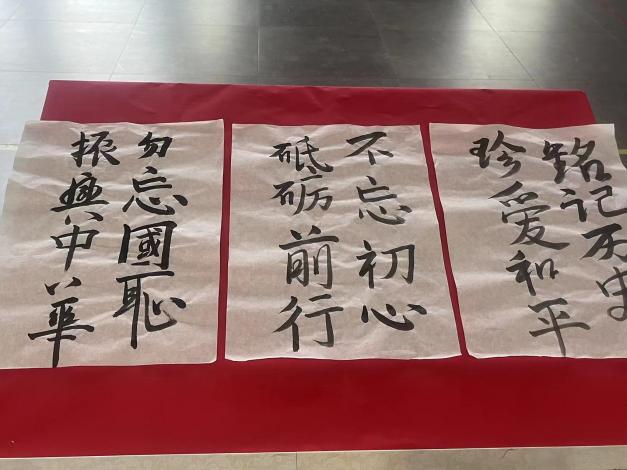 勿忘國恥
振興中華
不忘初心
砥砺前行
铭记历史
珍爱和平